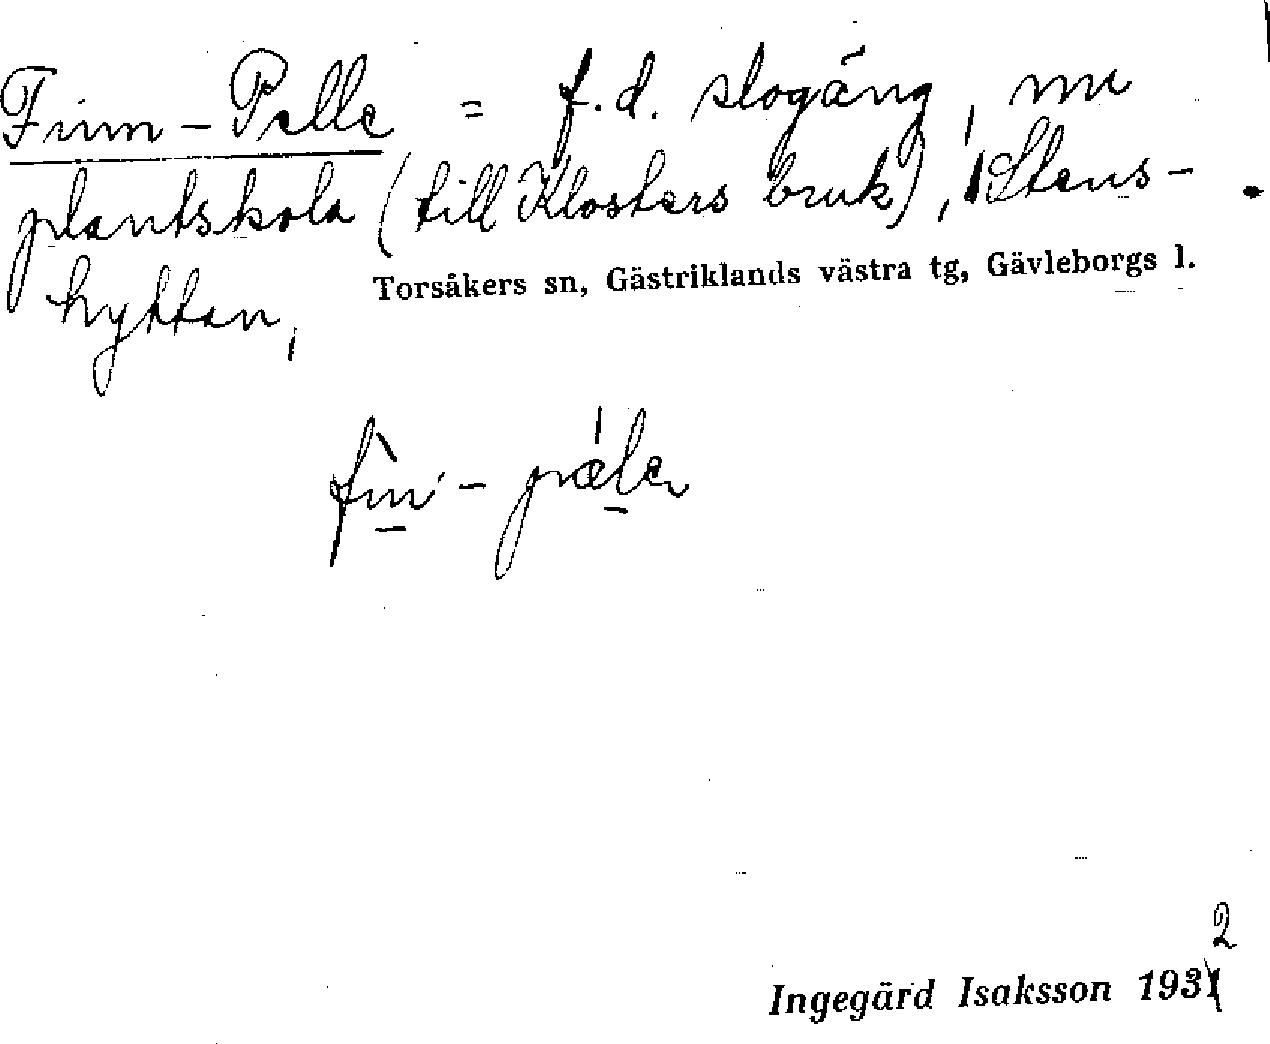 Finn-Pelle = f.d. slogäng, nu
plantskola (till Klosters bruk), Stens-
hyttan,
Torsåkers sn, Gästriklands västra tg, Gävleborgs l.
fìn-pǽle
2
Ingegärd Isaksson 1931